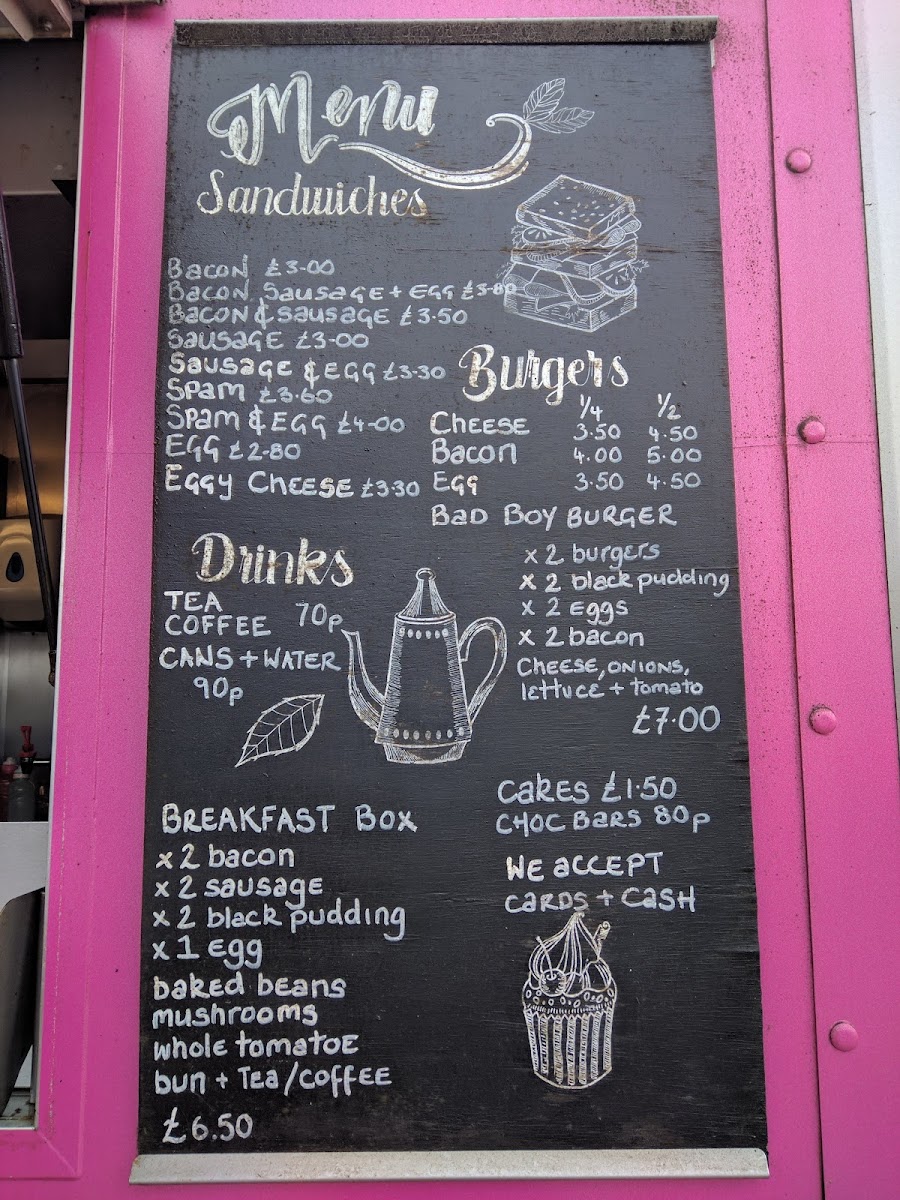 Menu
Sandwiches
Bacon £3-00
Bacon, Sausage + Egg £3-80
Bacon & sausage £3-50
Sausage £3-00
Sausage & Egg £3-30
Spam £3-60
Spam & Egg £4-00
Egg £2-80
Eggy Cheese £3-30
Burgers
1/4 1/2
Cheese 3.50 4.50
Bacon 4.00 5.00
Egg 3.50 4.50
Bad Boy Burger
x 2 burgers
x 2 black pudding
x 2 Eggs
x 2 bacon
Cheese, onions,
lettuce + tomato
£7.00
Drinks
TEA
COFFEE 70p
CANS + WATER
90p
Cakes £1.50
Choc Bars 80p
We accept
cards + cash
BREAKFAST BOX
x 2 bacon
x 2 sausage
x 2 black pudding
x 1 egg
baked beans
mushrooms
whole tomatoe
bun + Tea/Coffee
£6.50